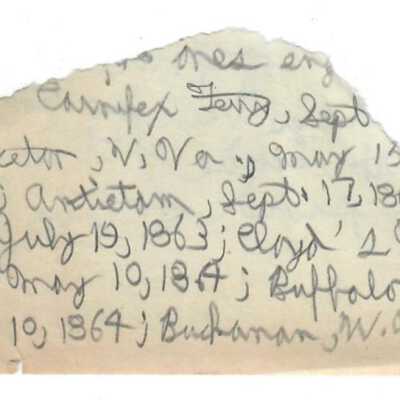 ones eng
Carnifex Ferry, Sept
ceton, W. Va., May 15
; Antietam, Sept. 17, 18
July 19, 1863; Cloyd's
May 10, 1864; Buffalo
10, 1864; Buchanan, W.